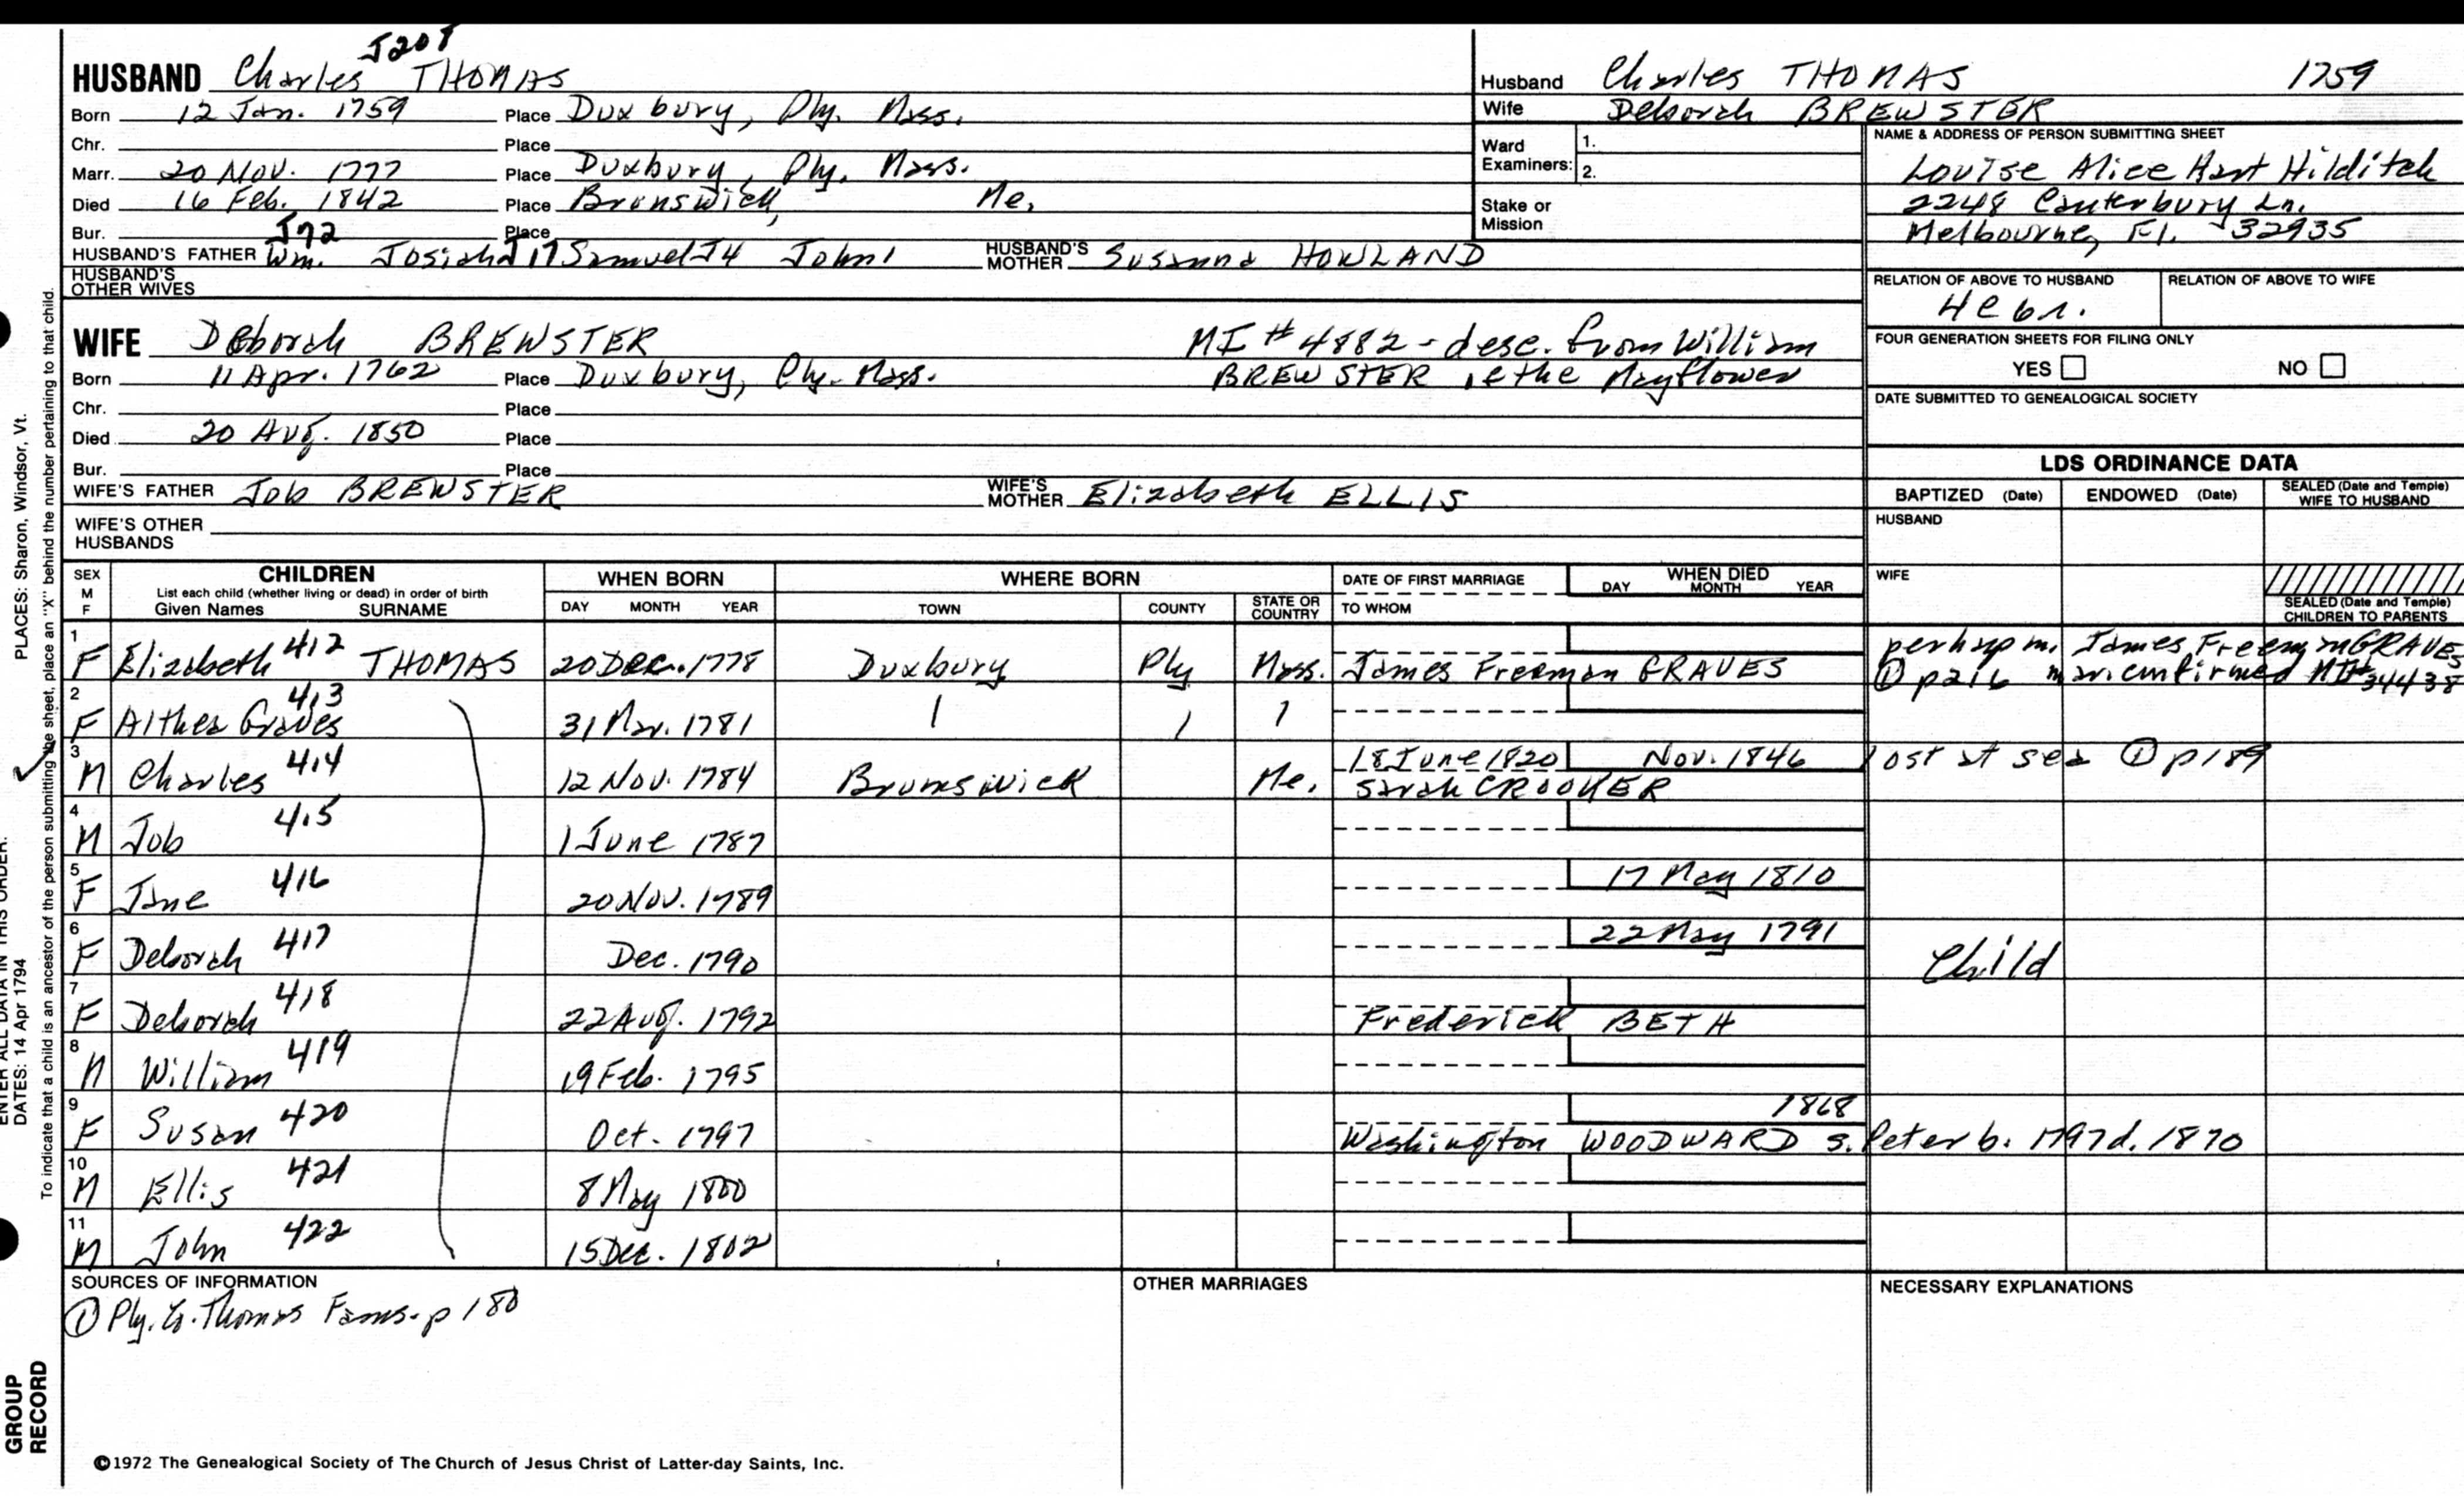 J208
HUSBAND Charles THOMAS
Born 12 Jan. 1759 Place Duxbury, Ply. Mass.
Chr. Place
Marr. 20 Nov. 1777 Place Duxbury, Ply. Mass.
Died 16 Feb. 1842 Place Brunswick, Me.
Bur. Place
J72
HUSBAND'S FATHER Wm. Josiah J17 Samuel J4 John1 HUSBAND'S MOTHER Susanna HOWLAND
HUSBAND'S OTHER WIVES
WIFE Deborah BREWSTER MI # 4882 - desc. from William
Born 11 Apr. 1762 Place Duxbury, Ply. Mass. BREWSTER of the Mayflower
Chr. Place
Died 20 Aug. 1850 Place
Bur. Place
WIFE'S FATHER Job BREWSTER WIFE'S MOTHER Elizabeth ELLIS
WIFE'S OTHER HUSBANDS
Husband Charles THOMAS 1759
Wife Deborah BREWSTER
Ward Examiners: 1.
2.
Stake or Mission
NAME & ADDRESS OF PERSON SUBMITTING SHEET
Louise Alice Hart Hilditch
2248 Canterbury Ln.
Melbourne, Fl. 32935
RELATION OF ABOVE TO HUSBAND RELATION OF ABOVE TO WIFE
4C 6r.
FOUR GENERATION SHEETS FOR FILING ONLY
YES NO
DATE SUBMITTED TO GENEALOGICAL SOCIETY
LDS ORDINANCE DATA
BAPTIZED (Date) ENDOWED (Date) SEALED (Date and Temple) WIFE TO HUSBAND
HUSBAND
WIFE
SEALED (Date and Temple) CHILDREN TO PARENTS
SEX M F CHILDREN WHEN BORN WHERE BORN DATE OF FIRST MARRIAGE WHEN DIED
List each child (whether living or dead) in order of birth
Given Names SURNAME DAY MONTH YEAR TOWN COUNTY STATE OR COUNTRY TO WHOM DAY MONTH YEAR
1 F Elizabeth 412 THOMAS 20 Dec. 1778 Duxbury Ply Mass. James Freeman GRAVES perhap m. James Freeman GRAVES
① p216 mar. confirmed MI# 34438
2 F Althea Graves 413 31 Mar. 1781
3 M Charles 414 12 Nov. 1784 Brunswick Me. 18 June 1820 Nov. 1846 lost at sea ① p189
Sarah CROOKER
4 M Job 415 1 June 1787
5 F Jane 416 20 Nov. 1789 17 May 1810
6 F Deborah 417 Dec. 1790 22 May 1791 Child
7 F Deborah 418 22 Aug. 1792 Frederick BETH
8 M William 419 19 Feb. 1795
9 F Susan 420 Oct. 1797 1868
Washington WOODWARD s. Peter b. 1797 d. 1870
10 M Ellis 421 8 May 1800
11 M John 422 15 Dec. 1802
SOURCES OF INFORMATION OTHER MARRIAGES NECESSARY EXPLANATIONS
① Ply. Co. Thomas Fams. p 180
©1972 The Genealogical Society of The Church of Jesus Christ of Latter-day Saints, Inc.
PLACES: Sharon, Windsor, Vt.
To indicate that a child is an ancestor of the person submitting the sheet, place an "X" behind the number pertaining to that child.
ENTER ALL DATA IN THIS ORDER:
DATES: 14 Apr 1794
GROUP
RECORD